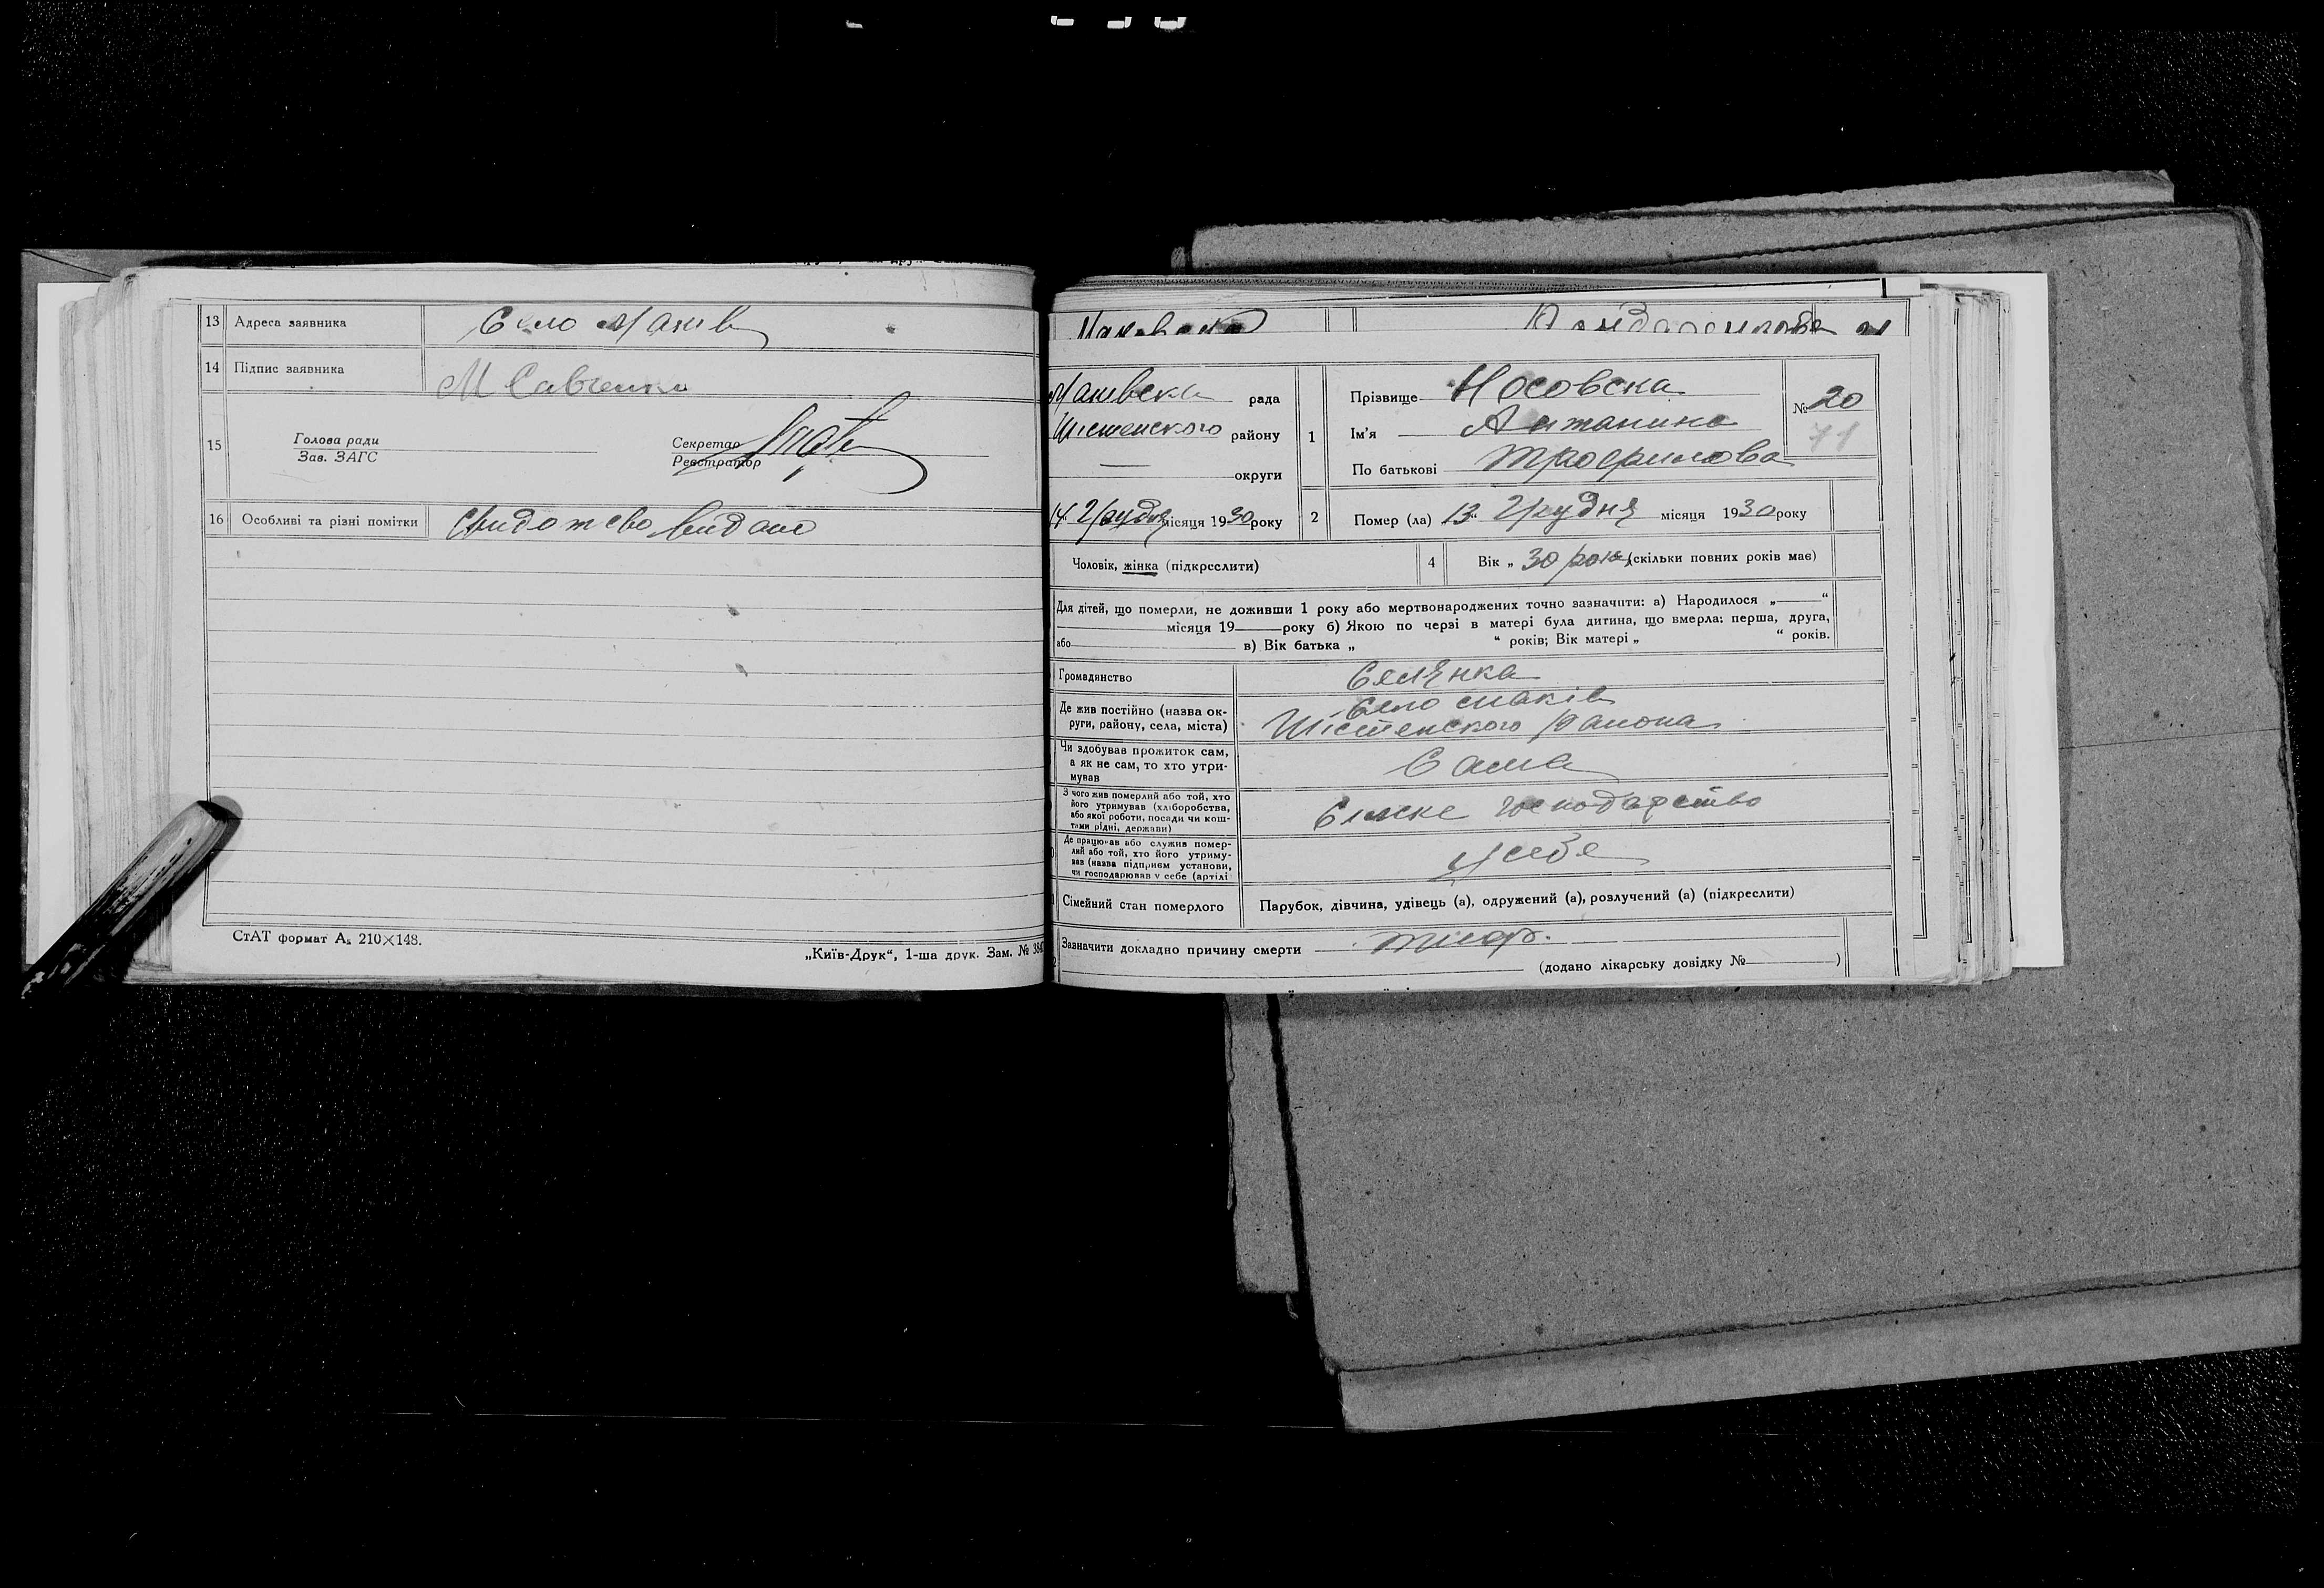 13 Адреса заявника Село Маків
14 Підпис заявника М Савченко
15 Голова ради
Зав. ЗАГС
Секретар
Реєстратор
16 Особливі та різні помітки Свидотство видано
СтАТ формат А₅ 210×148.
„Київ-Друк“, 1-ша друк. Зам. №
Маківска рада
Шістенского району
округи
14 Грудня місяця 1930 року
1 Прізвище Носовска
Ім'я Антанина
По батькові Трофимова
№ 20
71
2 Помер (ла) „13“ Грудня місяця 1930 року
Чоловік, жінка (підкреслити)
4 Вік „ 30 рока (скільки повних років має)
Для дітей, що померли, не доживши 1 року або мертвонароджених точно зазначити: а) Народилося „ “
місяця 19 року б) Якою по черзі в матері була дитина, що вмерла: перша, друга,
або в) Вік батька „ “ років; Вік матері „ “ років.
Громадянство Селянка
Де жив постійно (назва ок-
руги, району, села, міста)
Село Маків
Шістенского району
Чи здобував прожиток сам,
а як не сам, то хто утри-
мував
Сама
З чого жив померлий або той, хто
його утримував (хліборобства,
або якої роботи, посади чи кош-
тами рідні, держави)
Сілске господарство
Де працював або служив помер-
лий або той, хто його утриму-
вав (назва підприєм установи,
чи господарював у себе (артілі
У себе
Сімейний стан померлого Парубок, дівчина, удівець (а), одружений (а), розлучений (а) (підкреслити)
Зазначити докладно причину смерти тиф.
(додано лікарську довідку № )